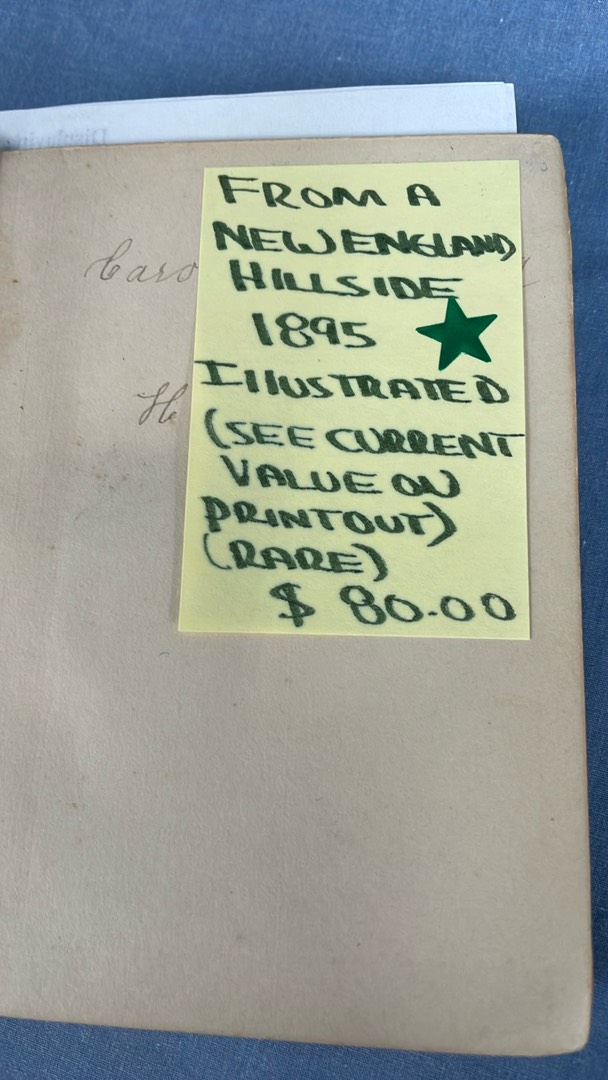 FROM A
NEW ENGLAND
HILLSIDE
1895
ILLUSTRATED
(SEE CURRENT
VALUE ON
PRINTOUT)
(RARE)
$ 80.00